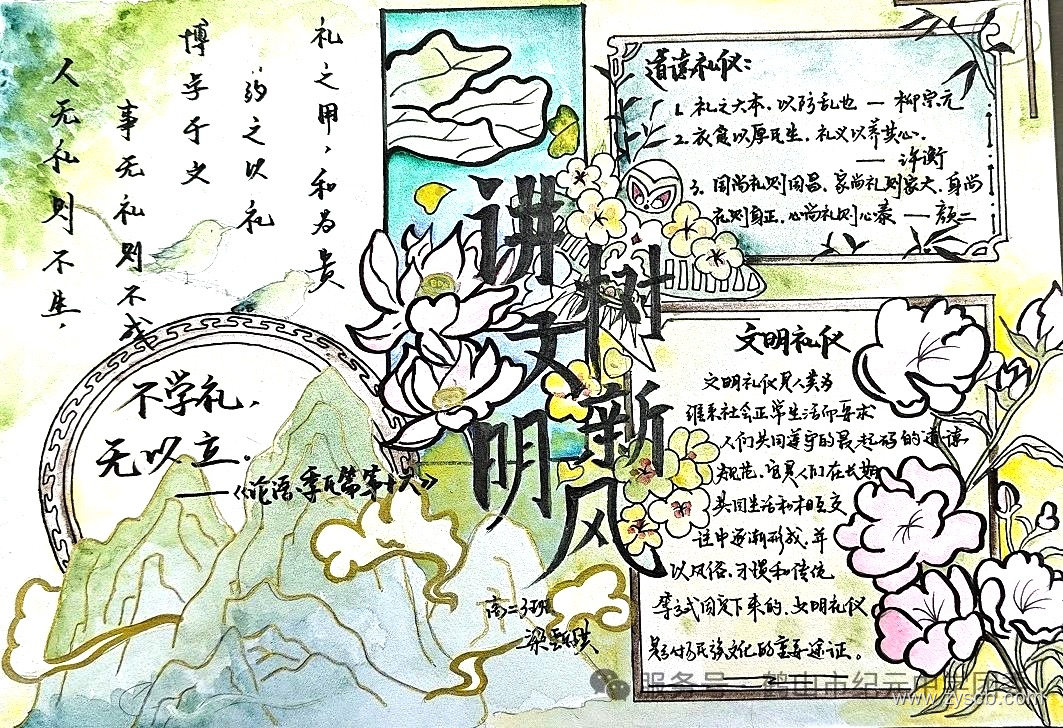 人无礼则不生，
事无礼则不成
博学于文
，约之以礼
礼之用，和为贵
不学礼，
无以立.
——《论语·季氏篇第十六》
讲文明
树新风
道德礼仪：
1. 礼之大本，以防乱也 — 柳宗元
2. 衣食以厚民生，礼义以养其心.
— 许衡
3. 国尚礼则国昌，家尚礼则家大，身尚
礼则身正，心尚礼则心泰 — 颜
文明礼仪
文明礼仪是人类为
维系社会正常生活而要求
人们共同遵守的最起码的道德
规范，它是人们在长期
共同生活和相互交
往中逐渐形成，并
以风俗、习惯和传统
等方式固定下来的，文明礼仪
是弘扬民族文化的重要途证。
高二3班
梁 琪
服务号·鹤山市纪元中学团委
www.zyscb.com